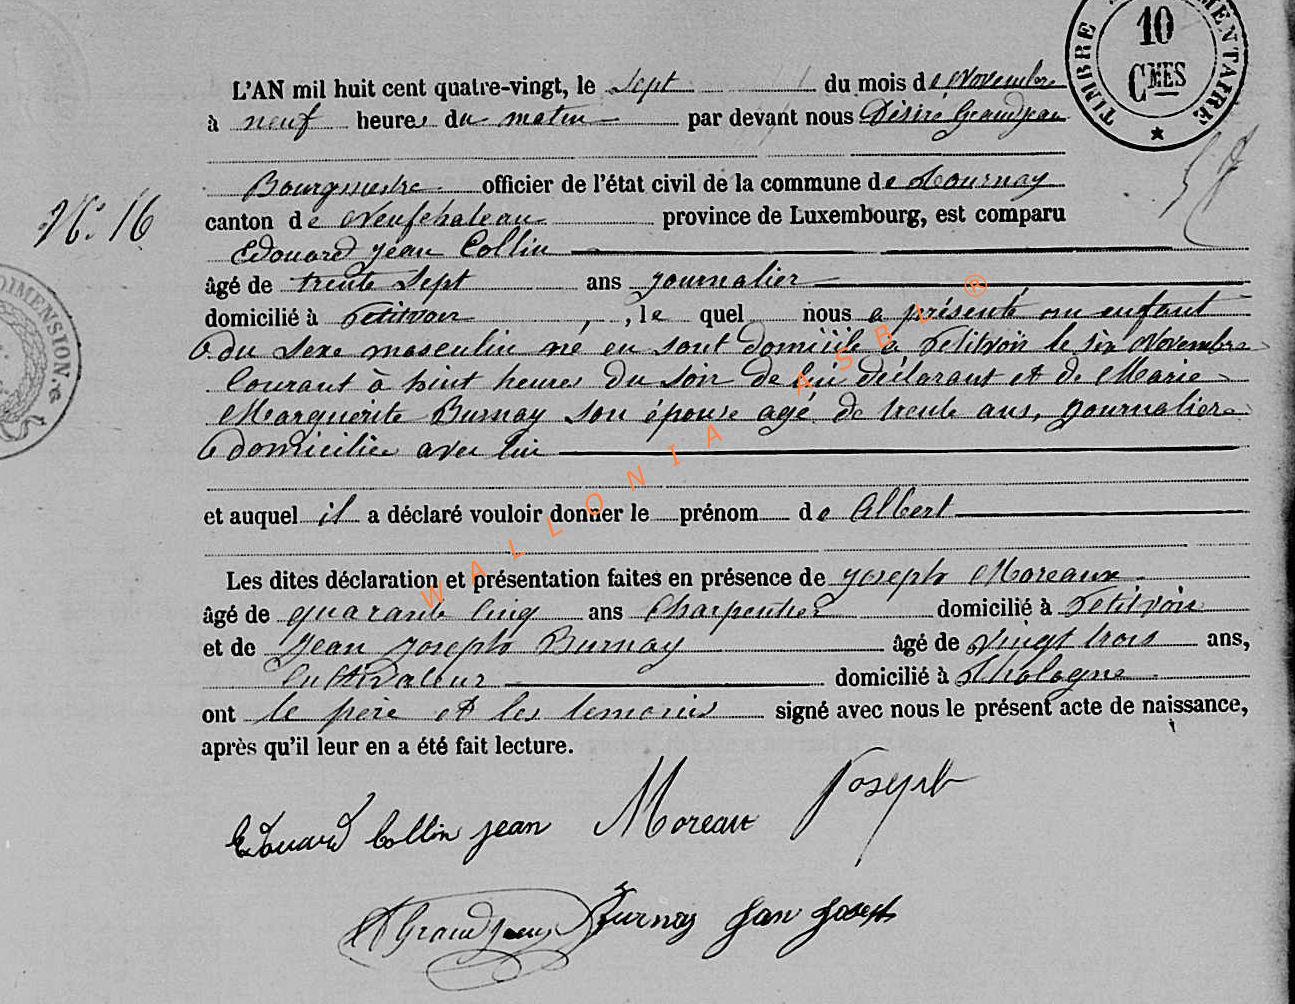 TIMBRE
MENTAIRE
10
CMES
L'AN mil huit cent quatre-vingt, le sept du mois de Novembre
à neuf heures du matin par devant nous Désiré Grandjean
Bourgmestre officier de l'état civil de la commune de Tournay
N° 16
canton de Neufchateau province de Luxembourg, est comparu
Edouard jean Collin
âgé de trente sept ans journalier
domicilié à Petitvoir, le quel nous a présenté un enfant
du sexe masculin né en sont domicile a Petitvoir le six Novembre
Courant à huit heures du soir de lui déclarant et de Marie
Marguerite Burnay son épouse agé de trente ans, journaliere
domiciliée avec lui
et auquel il a déclaré vouloir donner le prénom de Albert
Les dites déclaration et présentation faites en présence de joseph Moreaux
âgé de quarante cinq ans Charpentier domicilié à Petitvoir
et de Jean joseph Burnay âgé de vingt trois ans,
Cultivateur domicilié à
ont le père et les temoins signé avec nous le présent acte de naissance,
après qu'il leur en a été fait lecture.
Edouard Collin jean Moreau Joseph
Grandjean Burnay Jean Joseph
DIMENSION.
WALLONIA ASBL ®